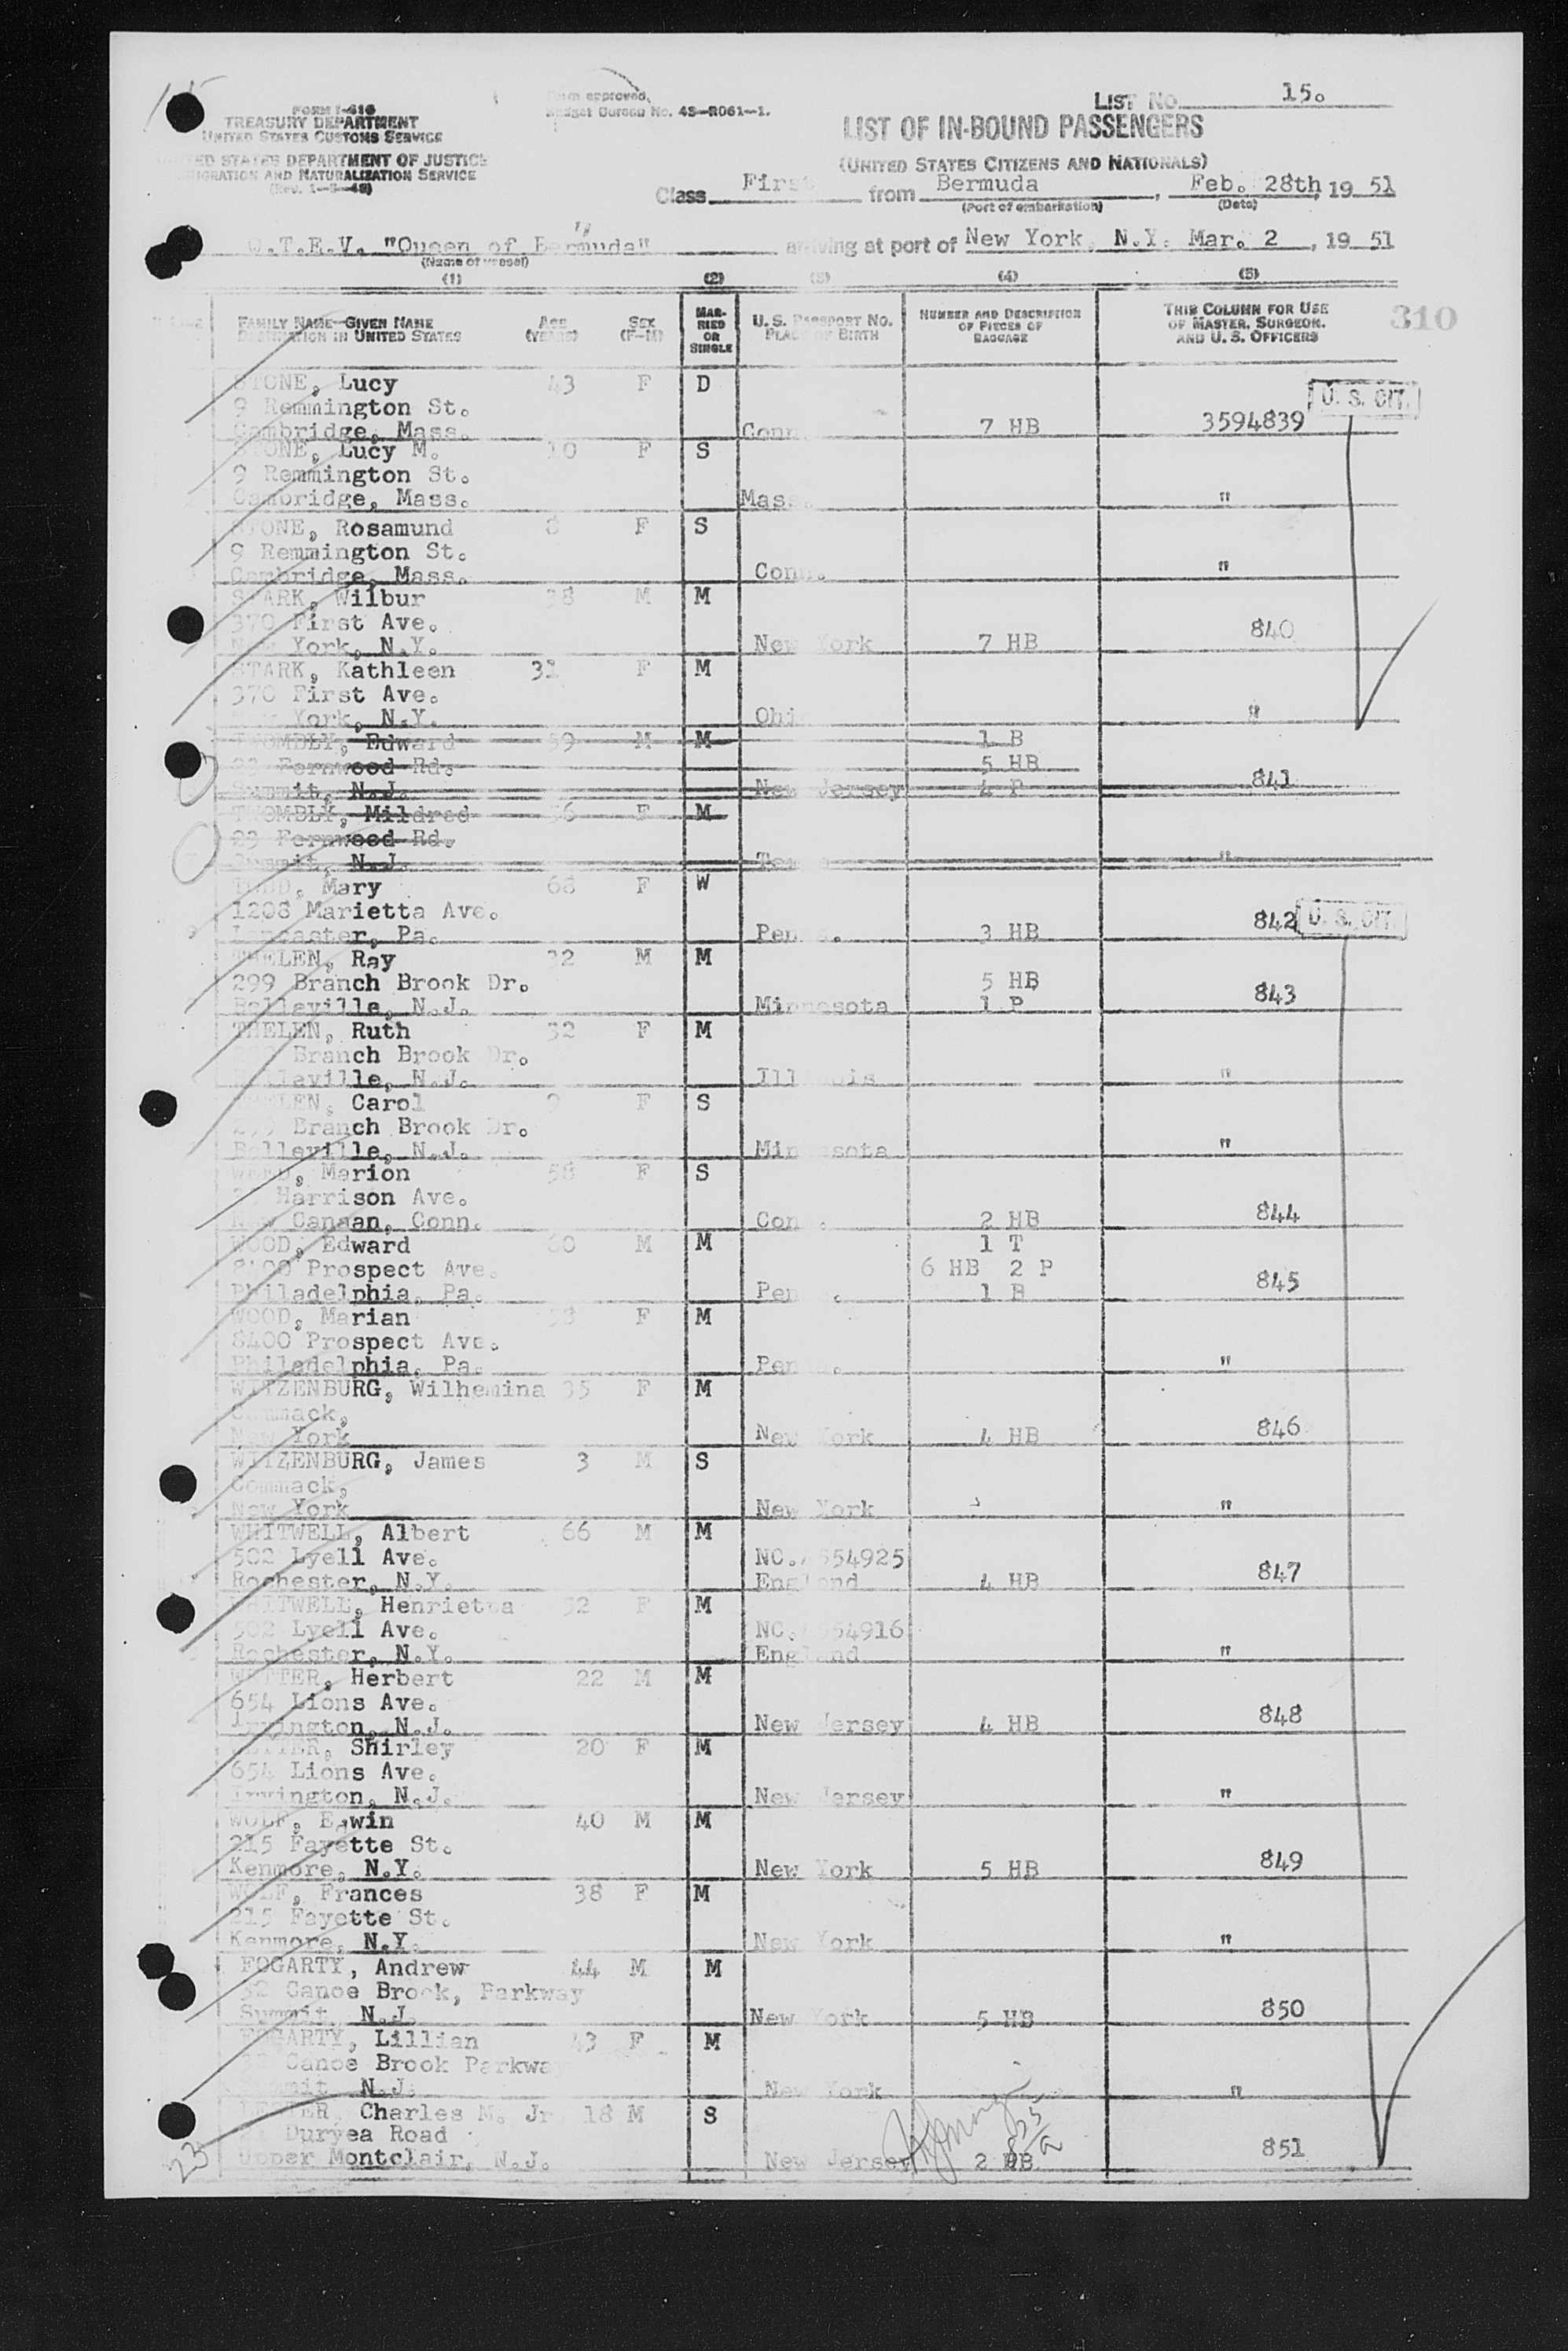 FORM I-416
TREASURY DEPARTMENT
UNITED STATES CUSTOMS SERVICE
UNITED STATES DEPARTMENT OF JUSTICE
IMMIGRATION AND NATURALIZATION SERVICE
Form approved.
Budget Bureau No. 43-R061-1.
LIST No. 15.
LIST OF IN-BOUND PASSENGERS
(UNITED STATES CITIZENS AND NATIONALS)
Class First from Bermuda, Feb. 28th, 19 51
(Port of embarkation) (Date)
"Queen of Bermuda" arriving at port of New York, N.Y. Mar. 2, 19 51
(Name of vessel)
(1) (2) (3) (4) (5)
FAMILY NAME—GIVEN NAME AGE SEX MAR- U. S. PASSPORT NO. NUMBER AND DESCRIPTION THIS COLUMN FOR USE
DESTINATION IN UNITED STATES (YEARS) (F-M) RIED PLACE OF BIRTH OF PIECES OF OF MASTER, SURGEON,
OR BAGGAGE AND U. S. OFFICERS
SINGLE
310
STONE, Lucy 43 F D U. S. CIT.
9 Remmington St.
Cambridge, Mass. Conn 7 HB 3594839
STONE, Lucy M. 10 F S
9 Remmington St.
Cambridge, Mass. Mass. "
STONE, Rosamund 8 F S
9 Remmington St.
Cambridge, Mass. Conn. "
STARK, Wilbur 38 M M
370 First Ave.
New York, N.Y. New York 7 HB 840
STARK, Kathleen 31 F M
370 First Ave.
New York, N.Y. Ohi "
TWOMBLY, Edward 59 M M 1 B
23 Fernwood Rd. 5 HB
Summit, N.J. New Jersey 4 P 841
TWOMBLY, Mildred 56 F M
23 Fernwood Rd.
Summit, N.J. "
TODD, Mary 68 F W
1208 Marietta Ave.
Lancaster, Pa. Penna. 3 HB 842 U. S. CIT.
THELEN, Ray 32 M M
299 Branch Brook Dr. 5 HB
Belleville, N.J. Minnesota 1 P 843
THELEN, Ruth 32 F M
Branch Brook Dr.
Belleville, N.J. Illinois "
THELEN, Carol 9 F S
299 Branch Brook Dr.
Belleville, N.J. Minnesota "
Marion 58 F S
Harrison Ave.
New Canaan, Conn. Con . 2 HB 844
WOOD, Edward 60 M M 1 T
8400 Prospect Ave. 6 HB 2 P
Philadelphia, Pa. Penna. 1 B 845
WOOD, Marian F M
8400 Prospect Ave.
Philadelphia, Pa. Penna. "
WITZENBURG, Wilhemina 35 F M
Commack,
New York New York 4 HB 846
WITZENBURG, James 3 M S
Commack,
New York New York "
WHITWELL, Albert 66 M M
502 Lyell Ave. NO. 554925
Rochester, N.Y. England 4 HB 847
WHITWELL, Henrietta 52 F M
502 Lyell Ave. NO. 554916
Rochester, N.Y. England "
Herbert 22 M M
654 Lions Ave.
Irvington, N.J. New Jersey 4 HB 848
Shirley 20 F M
654 Lions Ave.
Irvington, N.J. New Jersey "
WOLF, Edwin 40 M M
215 Fayette St.
Kenmore, N.Y. New York 5 HB 849
WOLF, Frances 38 F M
215 Fayette St.
Kenmore, N.Y. New York "
FOGARTY, Andrew 44 M M
32 Canoe Brook, Parkway
Summit, N.J. New York 5 HB 850
FOGARTY, Lillian 43 F M
Canoe Brook Parkwa
Summit, N.J. New York "
Charles M. Jr 18 M S
Duryea Road
Upper Montclair, N.J. New Jersey 2 HB 851
23